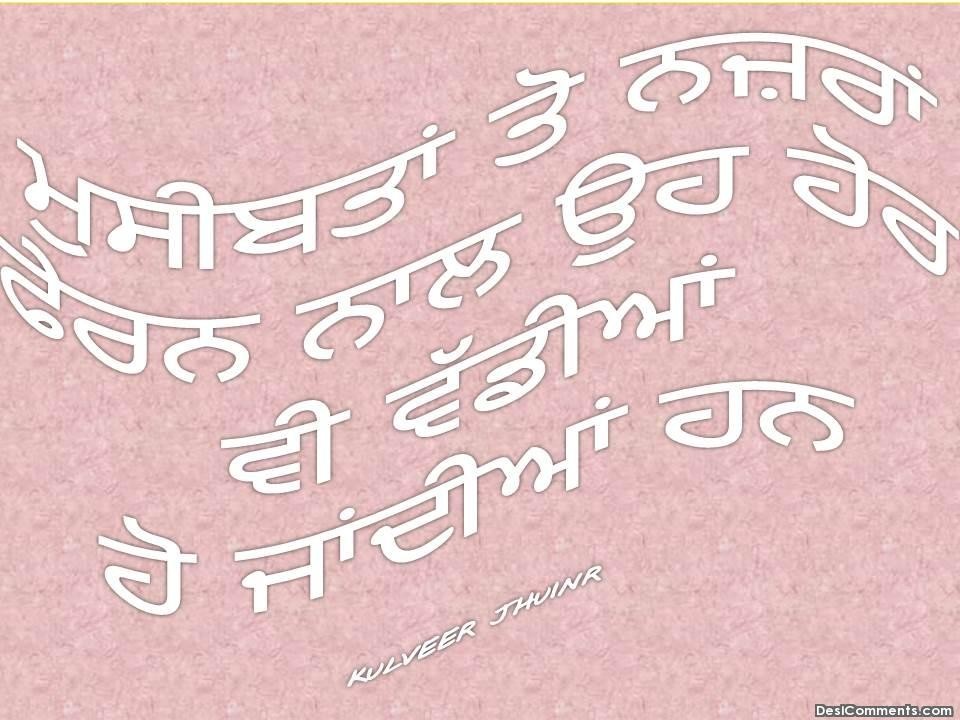 ਮੁਸੀਬਤਾਂ ਤੋ ਨਜ਼ਰਾਂ
ਫੇਰਨ ਨਾਲ ਉਹ ਹੋਰ
ਵੀ ਵੱਡੀਆਂ
ਹੋ ਜਾਂਦੀਆਂ ਹਨ
KULVEER JHUINR
DesiComments.com